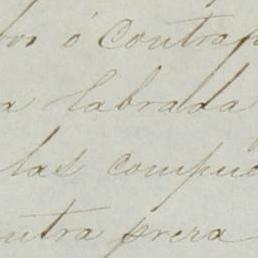 ó contrap
a labrada
las compu
ntra prera